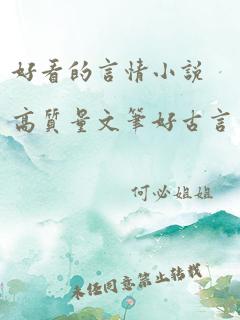 好看的言情小説
高質量文筆好古言
何必姐姐
未经同意禁止转载